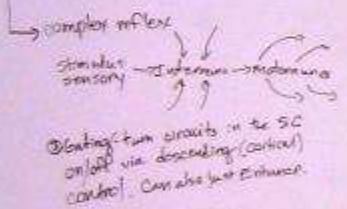 complex reflex
stimulus
sensory → Interneuron → motorneuron
② Gating - turn circuits in the SC
on/off via descending (cortical)
control. Can also just Enhance.